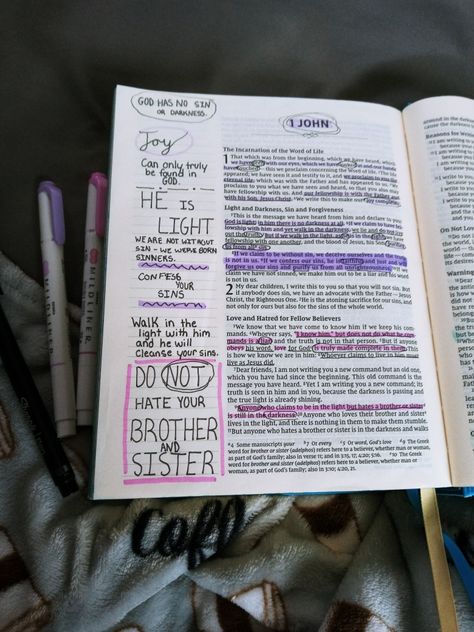 GOD HAS NO SIN
OR DARKNESS.
Joy
Can only truly
be found in
GOD.
HE IS
LIGHT
WE ARE NOT WITHOUT
SIN - WE WERE BORN
SINNERS.
CONFESS
YOUR
SINS
WALK in the
light with him
and he will
cleanse your sins.
DO NOT
HATE YOUR
BROTHER
AND
SISTER
1 JOHN
The Incarnation of the Word of Life
1 That which was from the beginning, which we have heard, which
we have seen with our eyes, which we have looked at and our hands
have touched—this we proclaim concerning the Word of life. ²The life
appeared; we have seen it and testify to it, and we proclaim to you the
eternal life, which was with the Father and has appeared to us. ³We
proclaim to you what we have seen and heard, so that you also may
have fellowship with us. And our fellowship is with the Father and
with his Son, Jesus Christ. ⁴We write this to make our joy complete.
Light and Darkness, Sin and Forgiveness
⁵This is the message we have heard from him and declare to you:
God is light; in him there is no darkness at all. ⁶If we claim to have fel-
lowship with him and yet walk in the darkness, we lie and do not live
out the truth. ⁷But if we walk in the light, as he is in the light, we have
fellowship with one another, and the blood of Jesus, his Son, purifies
us from all sin.
⁸If we claim to be without sin, we deceive ourselves and the truth
is not in us. ⁹If we confess our sins, he is faithful and just and will
forgive us our sins and purify us from all unrighteousness. ¹⁰If we
claim we have not sinned, we make him out to be a liar and his word
is not in us.
2 My dear children, I write this to you so that you will not sin. But
if anybody does sin, we have an advocate with the Father—Jesus
Christ, the Righteous One. ²He is the atoning sacrifice for our sins, and
not only for ours but also for the sins of the whole world.
Love and Hatred for Fellow Believers
³We know that we have come to know him if we keep his com-
mands. ⁴Whoever says, "I know him," but does not do what he com-
mands is a liar, and the truth is not in that person. ⁵But if anyone
obeys his word, love for God is truly made complete in them. This
is how we know we are in him: ⁶Whoever claims to live in him must
live as Jesus did.
⁷Dear friends, I am not writing you a new command but an old one,
which you have had since the beginning. This old command is the
message you have heard. ⁸Yet I am writing you a new command; its
truth is seen in him and in you, because the darkness is passing and
the true light is already shining.
⁹Anyone who claims to be in the light but hates a brother or sister
is still in the darkness. ¹⁰Anyone who loves their brother and sister
lives in the light, and there is nothing in them to make them stumble.
¹¹But anyone who hates a brother or sister is in the darkness and walks
MILDLINER
Coffee